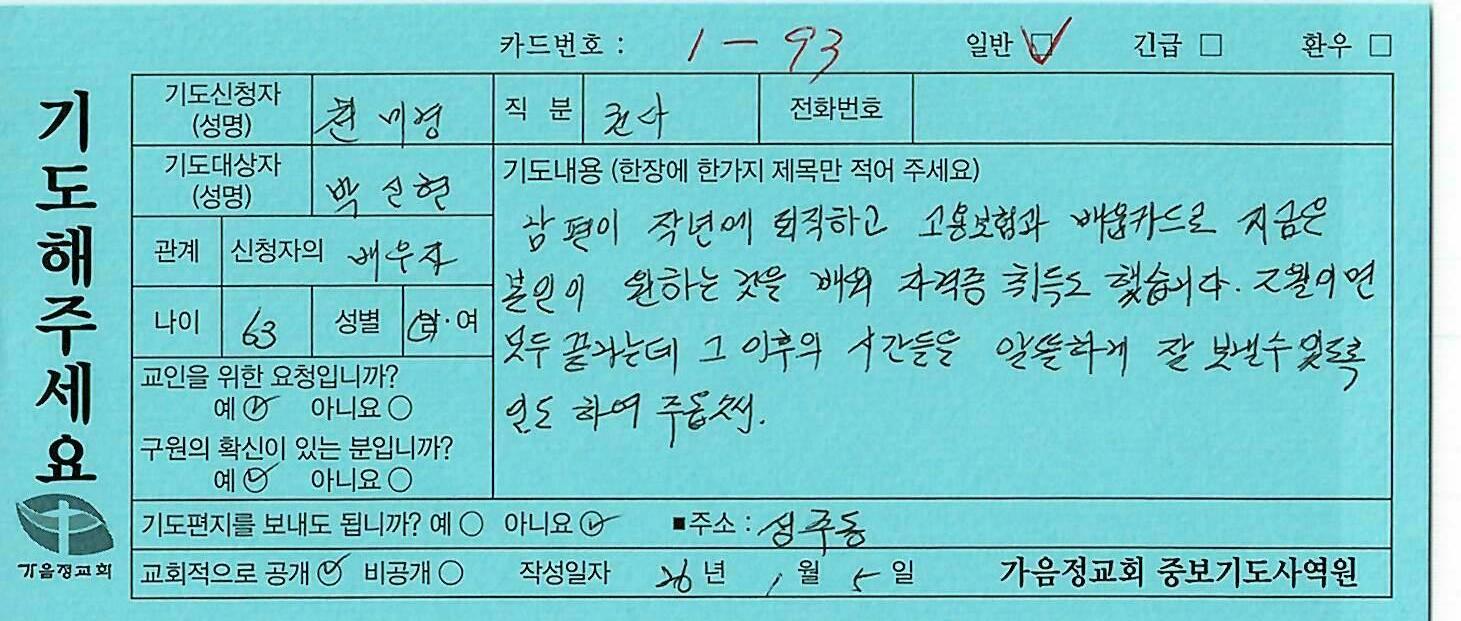 기도해주세요
가음정교회
카드번호 : 1 - 93 일반 ☑ 긴급 □ 환우 □
기도신청자 (성명) 미경 직 분 권사 전화번호
기도대상자 (성명) 박신현
관계 신청자의 배우자
나이 63 성별 남·여
교인을 위한 요청입니까?
예 ☑ 아니요 ○
구원의 확신이 있는 분입니까?
예 ☑ 아니요 ○
기도내용 (한장에 한가지 제목만 적어 주세요)
남편이 작년에 퇴직하고 고용보험과 배움카드로 지금은
본인이 원하는 것을 배워 자격증 취득도 했습니다. 2월이면
모두 끝나는데 그 이후의 시간들을 알뜰하게 잘 보낼수 있도록
인도 하여 주옵소서.
기도편지를 보내도 됩니까? 예 ○ 아니요 ☑ ■주소 : 성주동
교회적으로 공개 ☑ 비공개 ○ 작성일자 26 년 1 월 5 일 가음정교회 중보기도사역원